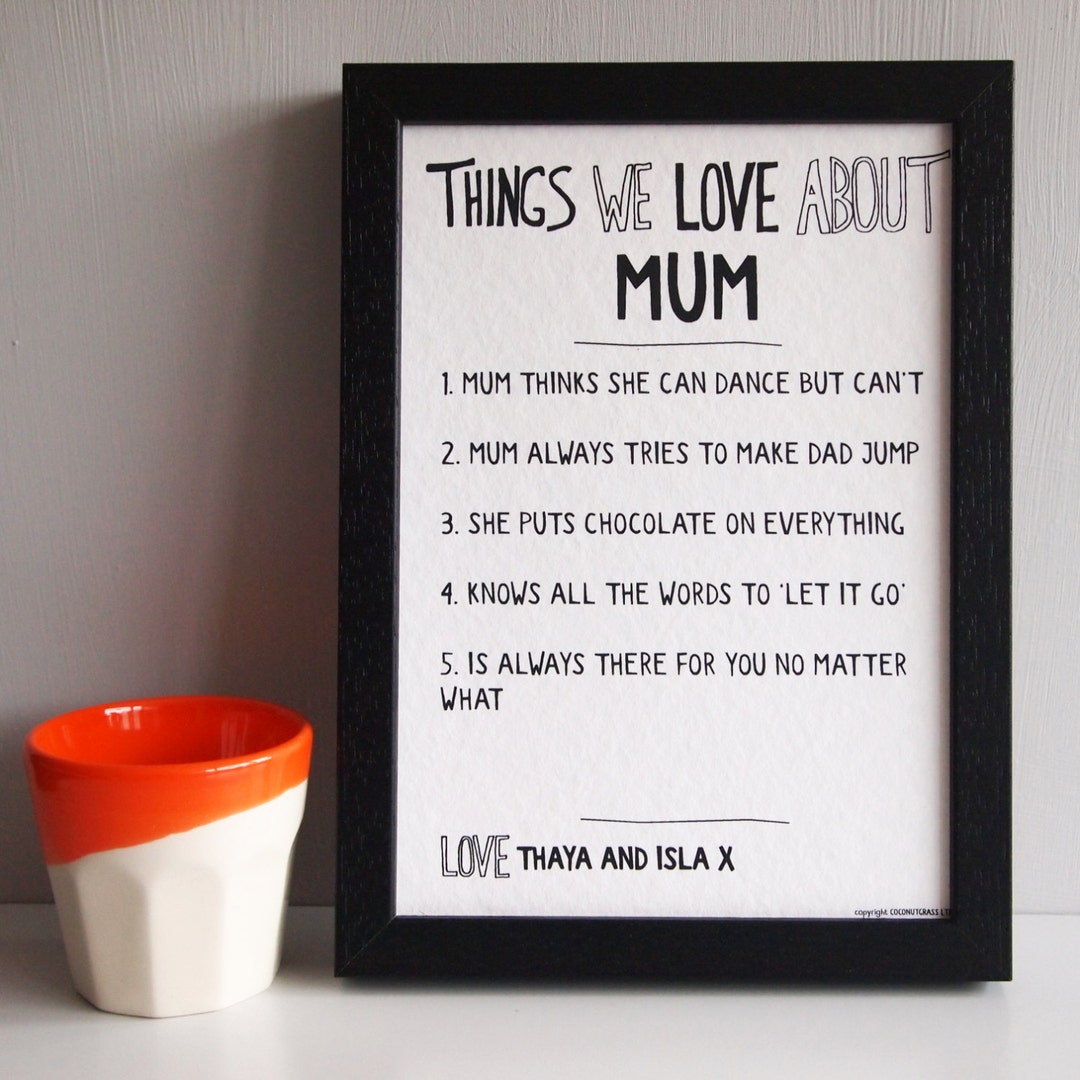 THINGS WE LOVE ABOUT
MUM
1. MUM THINKS SHE CAN DANCE BUT CAN'T
2. MUM ALWAYS TRIES TO MAKE DAD JUMP
3. SHE PUTS CHOCOLATE ON EVERYTHING
4. KNOWS ALL THE WORDS TO 'LET IT GO'
5. IS ALWAYS THERE FOR YOU NO MATTER
WHAT
LOVE THAYA AND ISLA X
copyright COCONUTGRASS